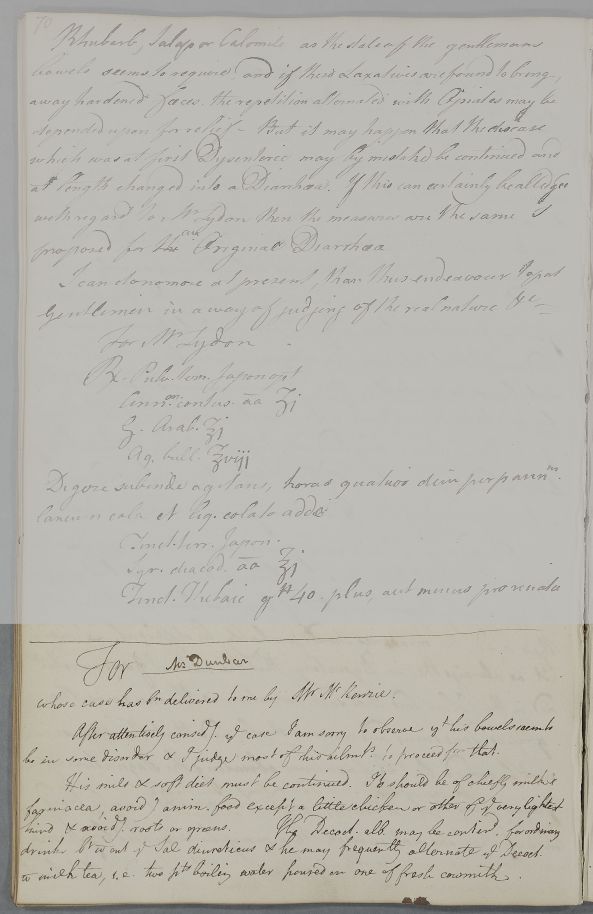 70
Rhubarb, Jalap or Calomile as the state of the gentlemans
bowels seems to require and if these Laxatives are found to bring
away hardened fæces. the repetition alternated with Opiates may be
depended upon for relief - But it may happen that the disease
which was at first Dysenteric may by mistake be continued and
at length changed into a Diarrhœa. If this can certainly be alledged
with regard to Mr Lydon then the measures are the same
proposed for the an Original Diarrhœa
I can do no more at present, than thus endeavour to put
Gentlemen in a way of judging of the real nature &c
For Mr Lydon
Rx. Pulv. terr. Japon
Cinn. contus. āā ʒj
G. Arab. ʒj
Aq. bull. ℥viij
Digere subinde agitans, horas quatuor dein per pann
cola et liq. colato adde
Tinct. terr. Japon.
Syr. diacod. āā ℥j
Tinct. Thebaic gtt 40. plus, aut minus pro re nata
For Mr Dunbar
whose case has bn delivered to me by Mr McKenzie.
After attentively considg. ye case I am sorry to observe yt his bowels seem to
be in some disorder & I judge most of his ailmts. to proceed from that.
His mild & soft diet must be continued. It should be of chiefly milk &
farinacea, avoidg anim. food except a little chicken or other of ye very lightest
kind & avoidg. roots or greens. The Decoct. alb. may be contind. for ordinary
drink but wtout ye Sal diureticus & he may frequently alternate ye Decoct.
w milk tea, i.e. two pts boiling water poured on one of fresh cowmilk.